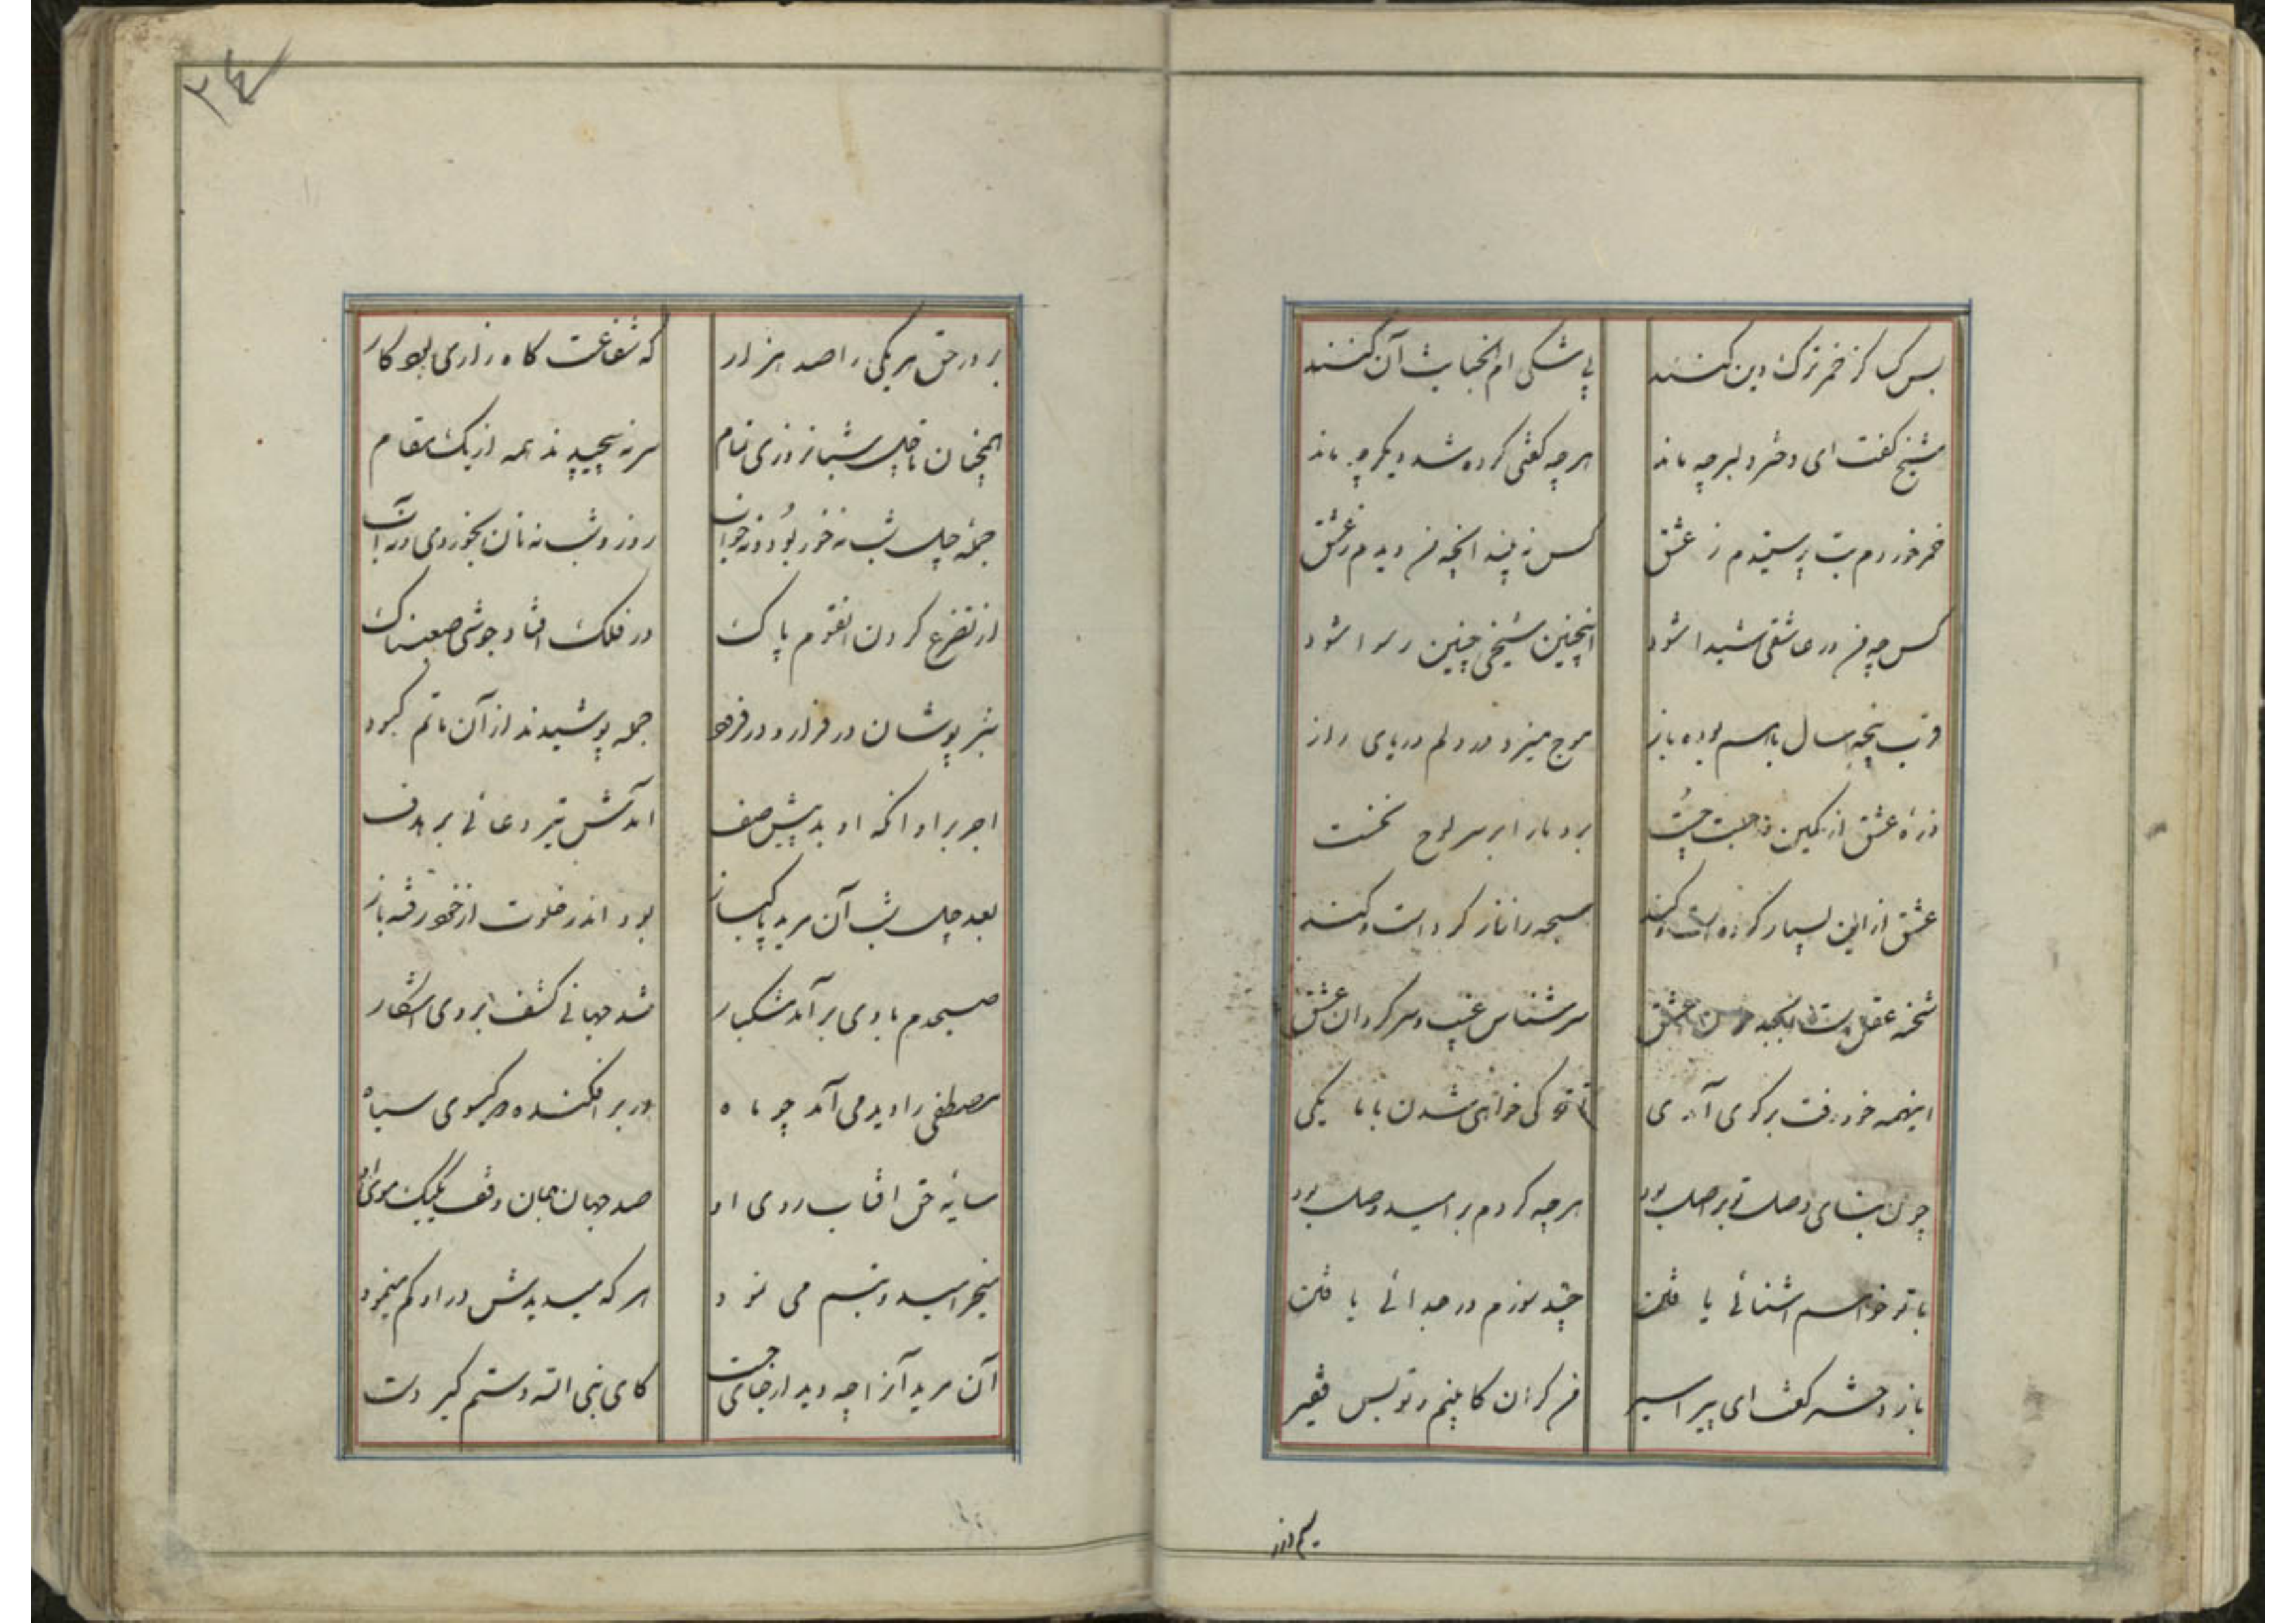 بس کسا کز خمر ترک دین کنند بی شکی ام الخبایث آن کنند
شیخ گفت ای دختر دلبر چه ماند هر چه گفتی کرده شد دیگر چه ماند
خمر خوردم بت پرستیدم ز عشق کس نه بیند انچه من دیدم ز عشق
کس چو من در عاشقی شیدا شود اینچنین شیخی چنین رسوا شود
قرب پنجه سال راهم بوده باز موج میزد در دلم دریای راز
ذرهٔ عشق از کمین درجست چُست برد ما را بر سر لوح نخست
عشق از این بسیار کرده است و کند سبحه را زنار کرد است و کند
شحنه عقل است ابجد عشق سرشناس غیب و سرگردان عشق
اینهمه خود رفت برگوی آندکی تا تو کی خواهی شدن با ما یکی
چون بنای وصل تو بر اصل بود هر چه کردم بر امید وصل بود
با تو خواهم اشنائی یافتن چند سوزم در جدائی یافتن
باز دختر گفت ای پیر اسیر من گران کابینم و تو بس فقیر
سیم و زر
۲۴
بر در حق هر یکی را صد هزار که شفاعت گاه زاری بود کار
همچنان تا چل شبانروزی تمام سر نه پیچیدند همه از یک مقام
جمله چل شب نه خور بُود و نه خواب روز و شب نه نان بخوردی و نه آب
از تضرع کردن انقوم پاک در فلک افتاد جوشی صعبناک
سبز پوشان در فراز و در فرود جمله پوشیدند از آن ماتم کبود
اخر برا و انکه او بد پیش صف امدآتش تیر دعائی بر هدف
بعد چل شب آن مرید پاکباز بود اندر خلوت از خود رفته باز
صبحدم بادی بر آمد مشکبار شد جهانی کشف بر وی اشکار
مصطفی را دید می آمد چو ماه در بر افکنده دو گیسوی سیاه
سایهٔ حق افتاب روی او صد جهان جان وقف یکیک موی او
میخرامید و تبسم می نمود هر که میدیدش در او گم مینمود
آن مرید آنرا چو دید از جای جست کای نبی الله دستم گیر دست